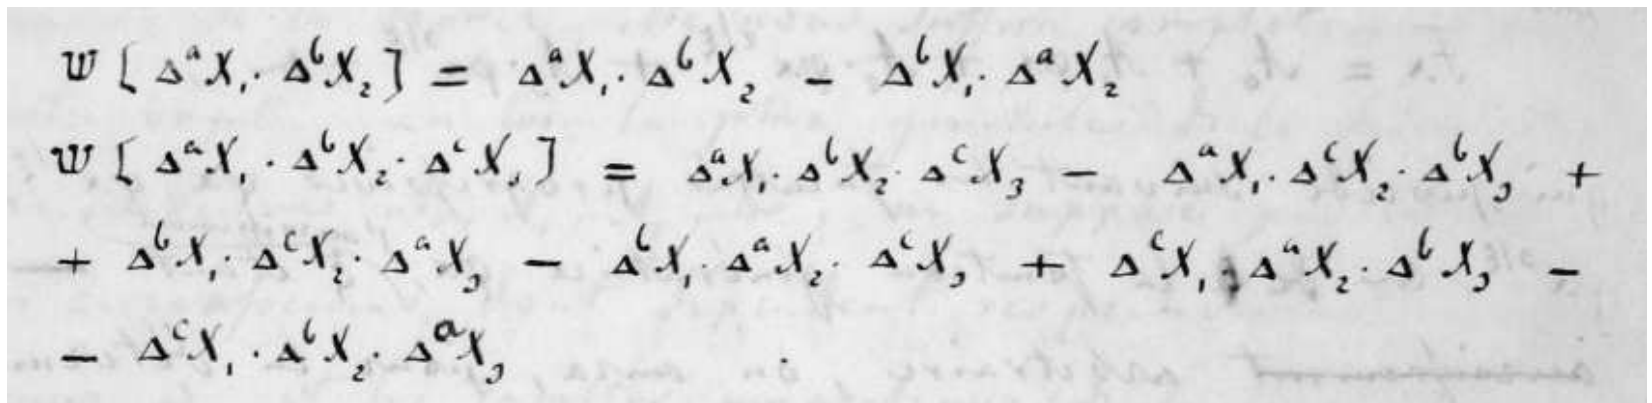 Ш [ ΔᵃX₁ · ΔᵇX₂ ] = ΔᵃX₁ · ΔᵇX₂ − ΔᵇX₁ · ΔᵃX₂
Ш [ ΔᵃX₁ · ΔᵇX₂ · ΔᶜX₃ ] = ΔᵃX₁ · ΔᵇX₂ · ΔᶜX₃ − ΔᵃX₁ · ΔᶜX₂ · ΔᵇX₃ +
+ ΔᵇX₁ · ΔᶜX₂ · ΔᵃX₃ − ΔᵇX₁ · ΔᵃX₂ · ΔᶜX₃ + ΔᶜX₁ · ΔᵃX₂ · ΔᵇX₃ −
− ΔᶜX₁ · ΔᵇX₂ · ΔᵃX₃